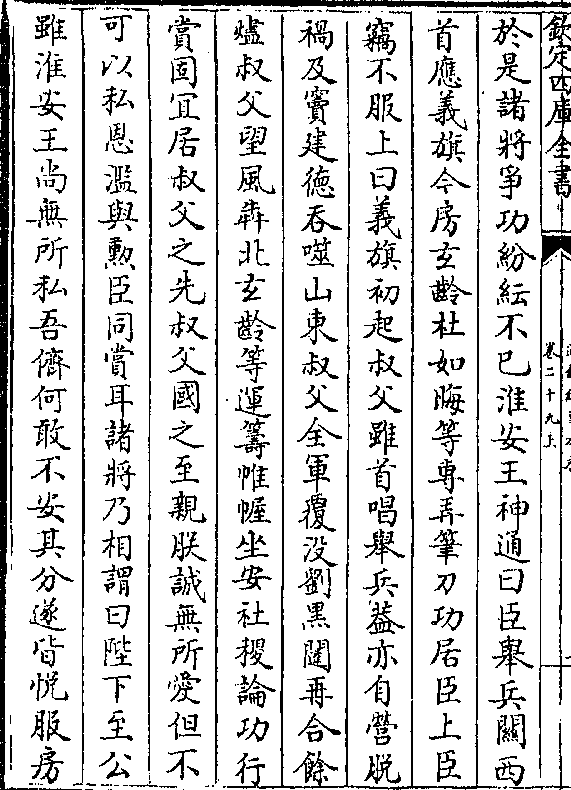 欽定四庫全書
卷二十九上
於是諸將爭功紛紜不已淮安王神通曰臣舉兵關西
首應義旗今房玄齡杜如晦等専弄筆刀功居臣上臣
竊不服上曰義旗初起叔父雖首唱舉兵葢亦自營脱
禍及竇建德吞噬山東叔父全軍覆没劉黒闥再合餘
燼叔父望風犇北玄齡等運籌帷幄坐安社稷論功行
賞固宜居叔父之先叔父國之至親朕誠無所愛但不
可以私恩濫與勲臣同賞耳諸將乃相謂曰陛下至公
雖淮安王尚無所私吾儕何敢不安其分遂皆悦服房